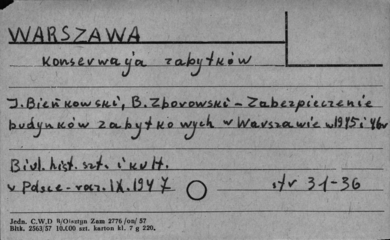 WARSZAWA
konserwacja zabytków
J. Bieńkowski, B. Zborowski - Zabezpieczenie
budynków zabytkowych w Warszawie w 1945 i 46 r
Biul. hist. szt. i kult.
w Polsce - rocz. IX. 1947 str 31-36
Jedn. C.W.D 9/Olsztyn Zam 2776/on/57
Bltk. 2563/57 10.000 szt. karton kl. 7 g 220.